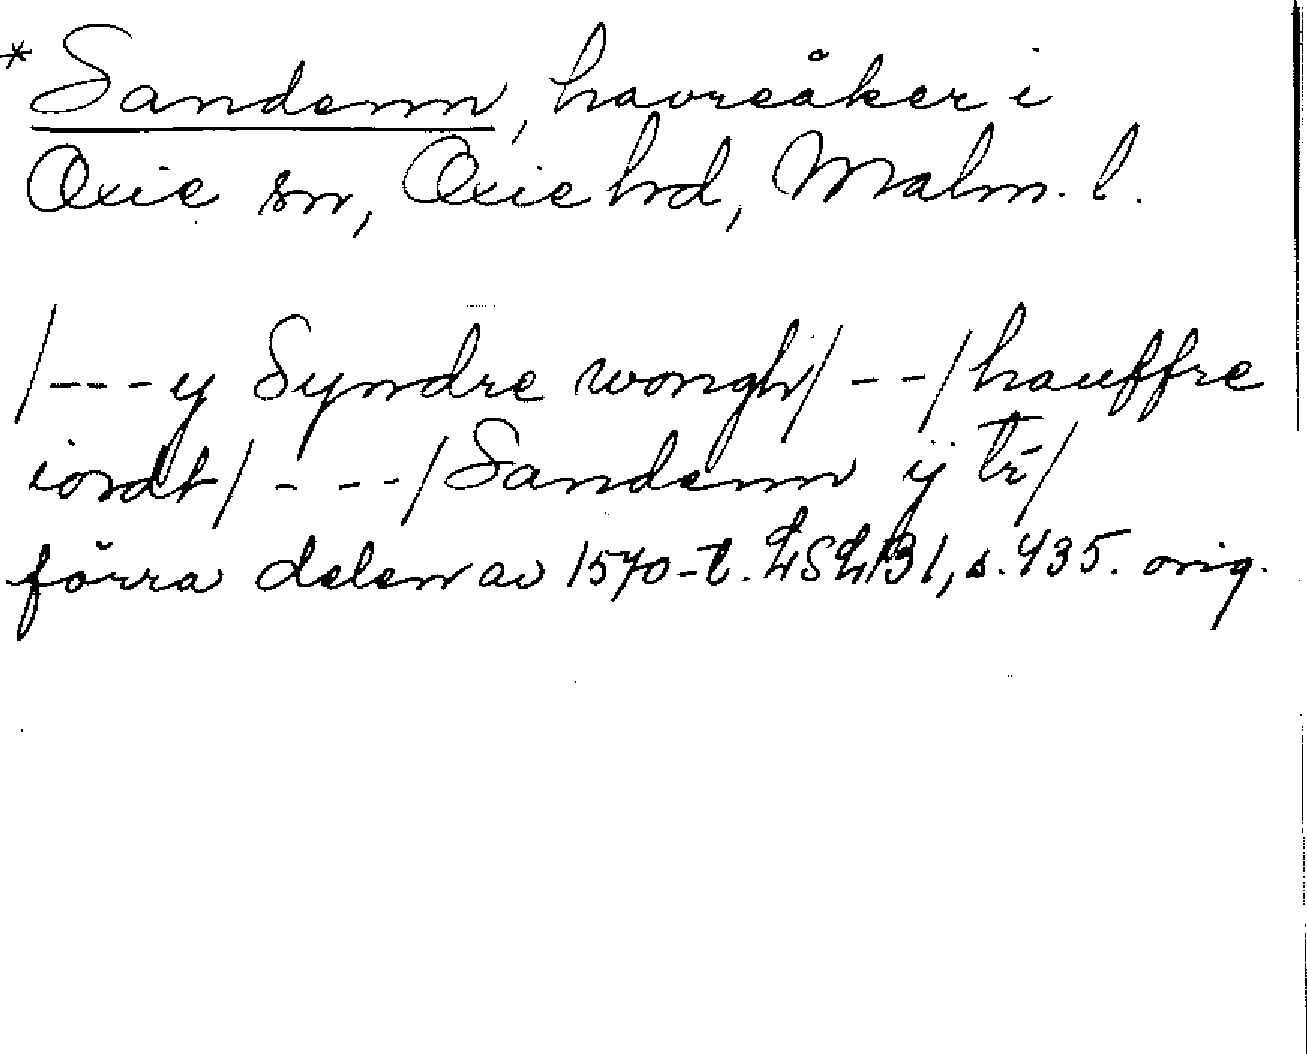 *Sandenn, havreåker i
Oxie sn, Oxie hd, Malm. l.
/---y Syndre wongh/--/hauffre
iordt/----/Sandenn ÿ
förra delen av 1570-t. LSL131, s. 435. orig.